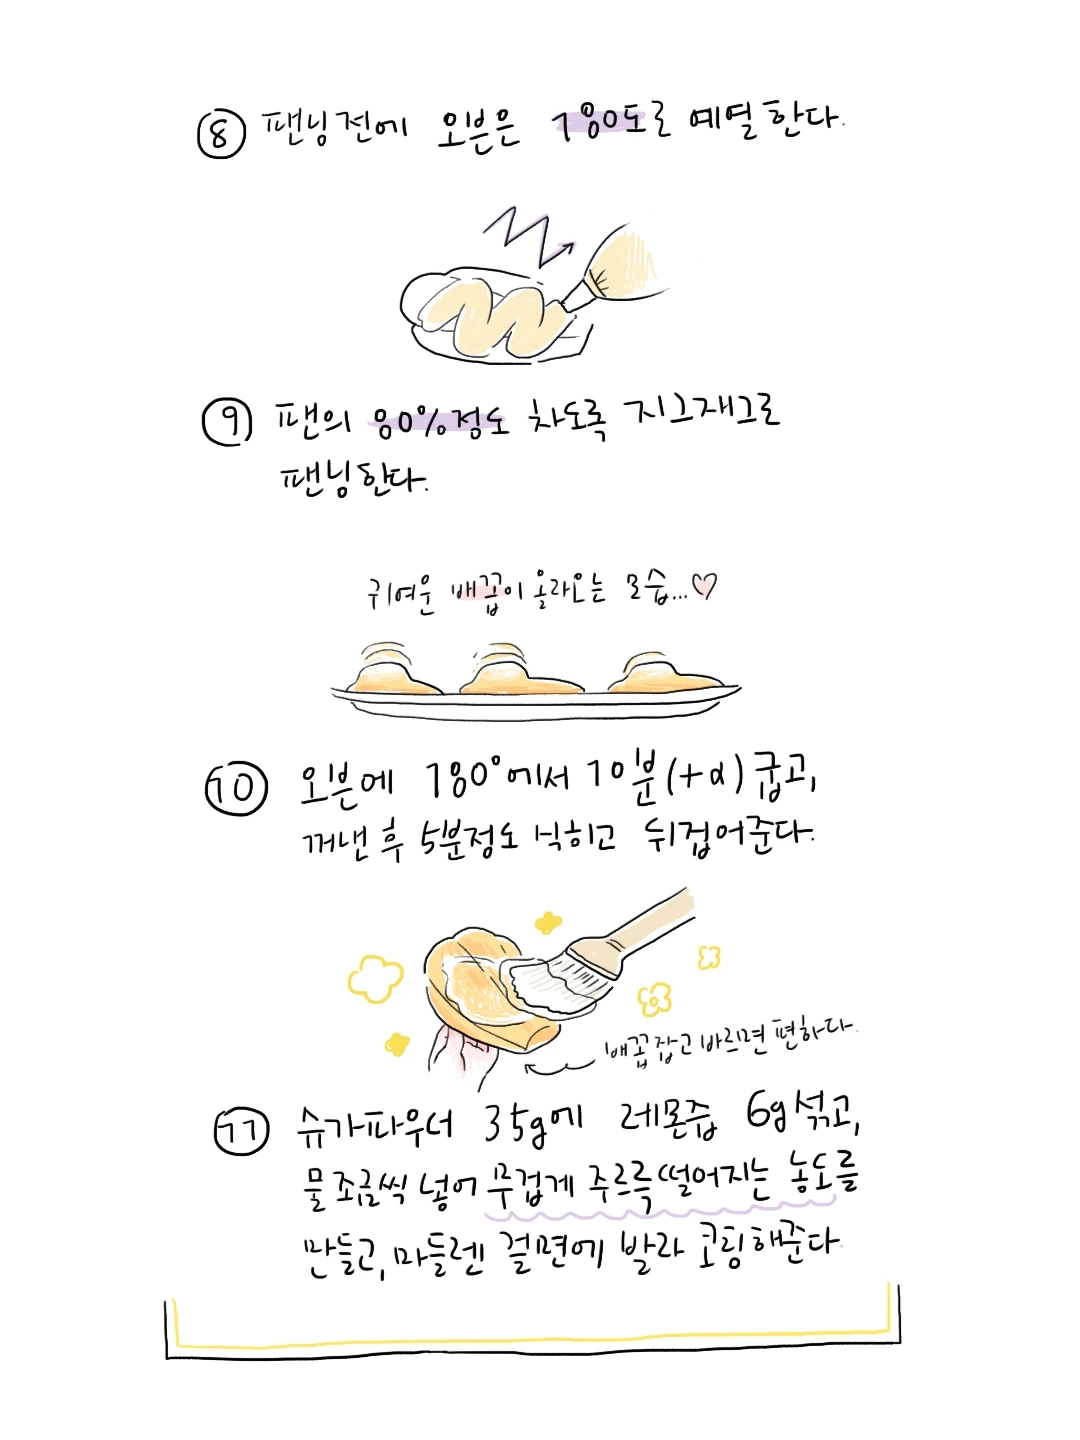 ⑧ 팬닝전에 오븐은 180도로 예열한다.
⑨ 팬의 80%정도 차도록 지그재그로
팬닝한다.
귀여운 배꼽이 올라오는 모습...♡
⑩ 오븐에 180°에서 10분(+α) 굽고,
꺼낸 후 5분정도 식히고 뒤집어준다.
배꼽잡고 바르면 편하다.
⑪ 슈가파우더 35g에 레몬즙 6g 섞고,
물 조금씩 넣어 무겁게 주르륵 떨어지는 농도를
만들고, 마들렌 겉면에 발라 코팅해준다.